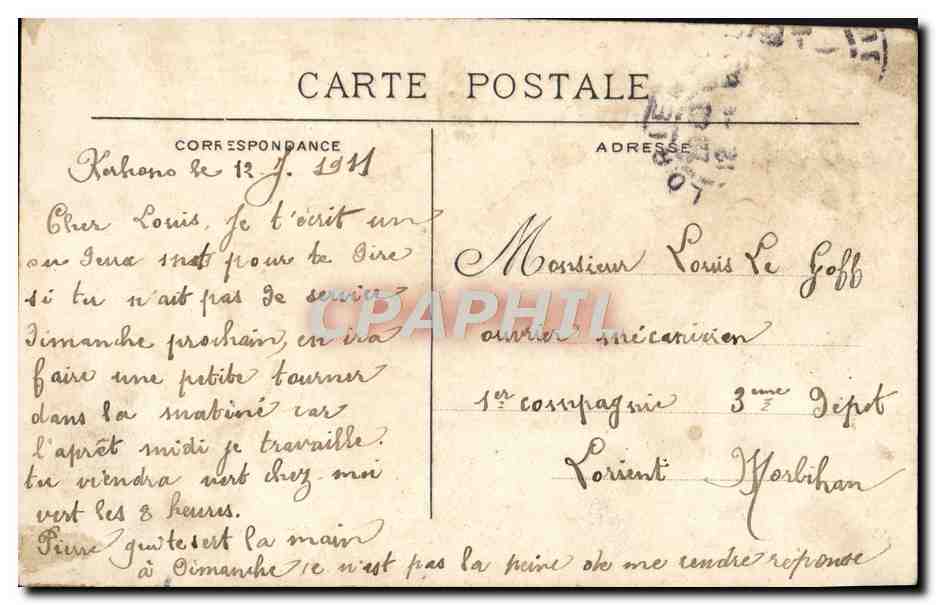 CARTE POSTALE
CORRESPONDANCE
Kerhono le 12 J. 1911
Cher Louis, Je t'écrit un
ou deux mot pour te dire
si tu n'ait pas de service
dimanche prochain, on ira
faire une petite tourner
dans la matiné car
l'aprêt midi je travaille.
tu viendra vert chez moi
vert les 8 heures.
Pierre qui te sert la main
à Dimanche ce n'est pas la peine de me rendre réponse
ADRESSE
LORIE
Monsieur Louis Le Goff
ouvrier mécanicien
1er compagnie 3eme Dépot
Lorient Morbihan
CPAPHIL